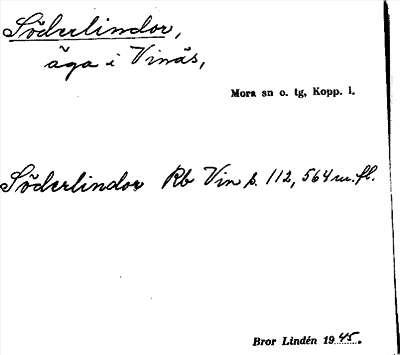 Söderlindor,
äga i Vinäs,
Mora sn o. tg, Kopp. l.
Söderlindor Rb Vin s. 112, 564 m. fl.
Bror Lindén 1945.